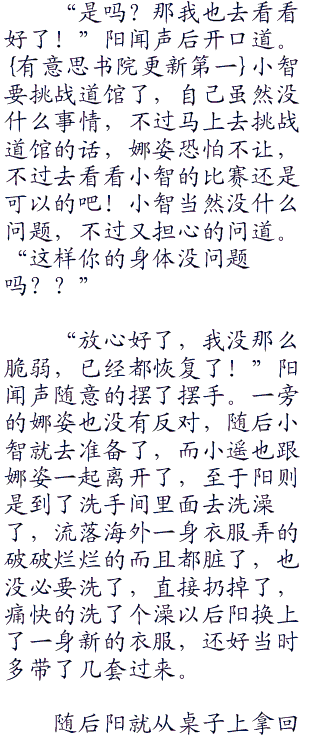 “是吗？那我也去看看
好了！”阳闻声后开口道。
{有意思书院更新第一}小智
要挑战道馆了，自己虽然没
什么事情，不过马上去挑战
道馆的话，娜姿恐怕不让，
不过去看看小智的比赛还是
可以的吧！小智当然没什么
问题，不过又担心的问道。
“这样你的身体没问题
吗？？”
“放心好了，我没那么
脆弱，已经都恢复了！”阳
闻声随意的摆了摆手。一旁
的娜姿也没有反对，随后小
智就去准备了，而小遥也跟
娜姿一起离开了，至于阳则
是到了洗手间里面去洗澡
了，流落海外一身衣服弄的
破破烂烂的而且都脏了，也
没必要洗了，直接扔掉了，
痛快的洗了个澡以后阳换上
了一身新的衣服，还好当时
多带了几套过来。
随后阳就从桌子上拿回